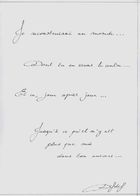 Je reconstruirai un monde...
Dont tu en seras le centre...
Et ce, jour après jour...
Jusqu'à ce qu'il n'y ait
plus que moi
dans ton univers...